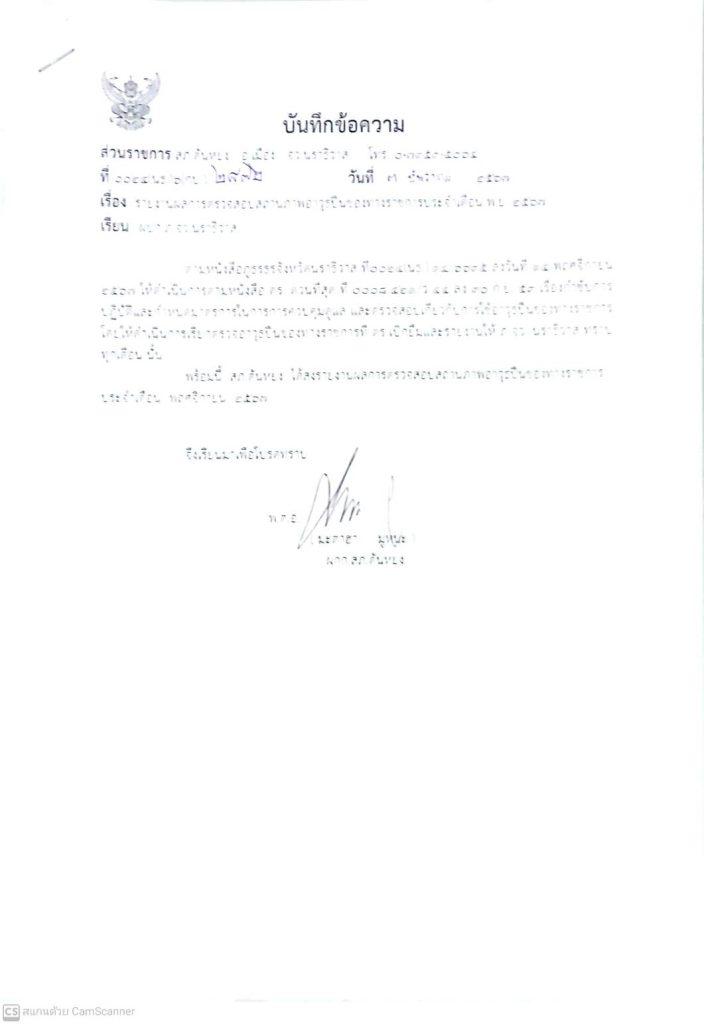 บันทึกข้อความ
ส่วนราชการ สภ.ตันหยง อ.เมือง จว.นราธิวาส โทร
ที่ ๒๙๗๒ วันที่ ๓ ธันวาคม ๒๕๖๓
เรื่อง รายงานผลการตรวจสอบสถานภาพอาวุธปืนของทางราชการประจำเดือน พ.ย. ๒๕๖๓
เรียน ผบก.ภ.จว.นราธิวาส
ตามหนังสือ นราธิวาส ที่ ลงวันที่ พฤศจิกายน
๒๕๖๓ ให้ดำเนินการตามหนังสือ ตร. ด่วนที่สุด ที่ ลง ก.ย. เรื่องกำชับการ
ปฏิบัติและกำหนดมาตรการในการการควบคุมดูแล และตรวจสอบเกี่ยวกับการใช้อาวุธปืนของทางราชการ
โดยให้ดำเนินการ ตรวจอาวุธปืนของทางราชการที่ ตร.เบิกยืมและรายงานให้ ภ.จว.นราธิวาส ทราบ
ทุกเดือน นั้น
พร้อมนี้ สภ.ตันหยง ได้ส่งรายงานผลการตรวจสอบสถานภาพอาวุธปืนของทางราชการ
ประจำเดือน พฤศจิกายน ๒๕๖๓
จึงเรียนมาเพื่อโปรดทราบ
พ.ต.อ.
ผกก.สภ.ตันหยง
CS สแกนด้วย CamScanner